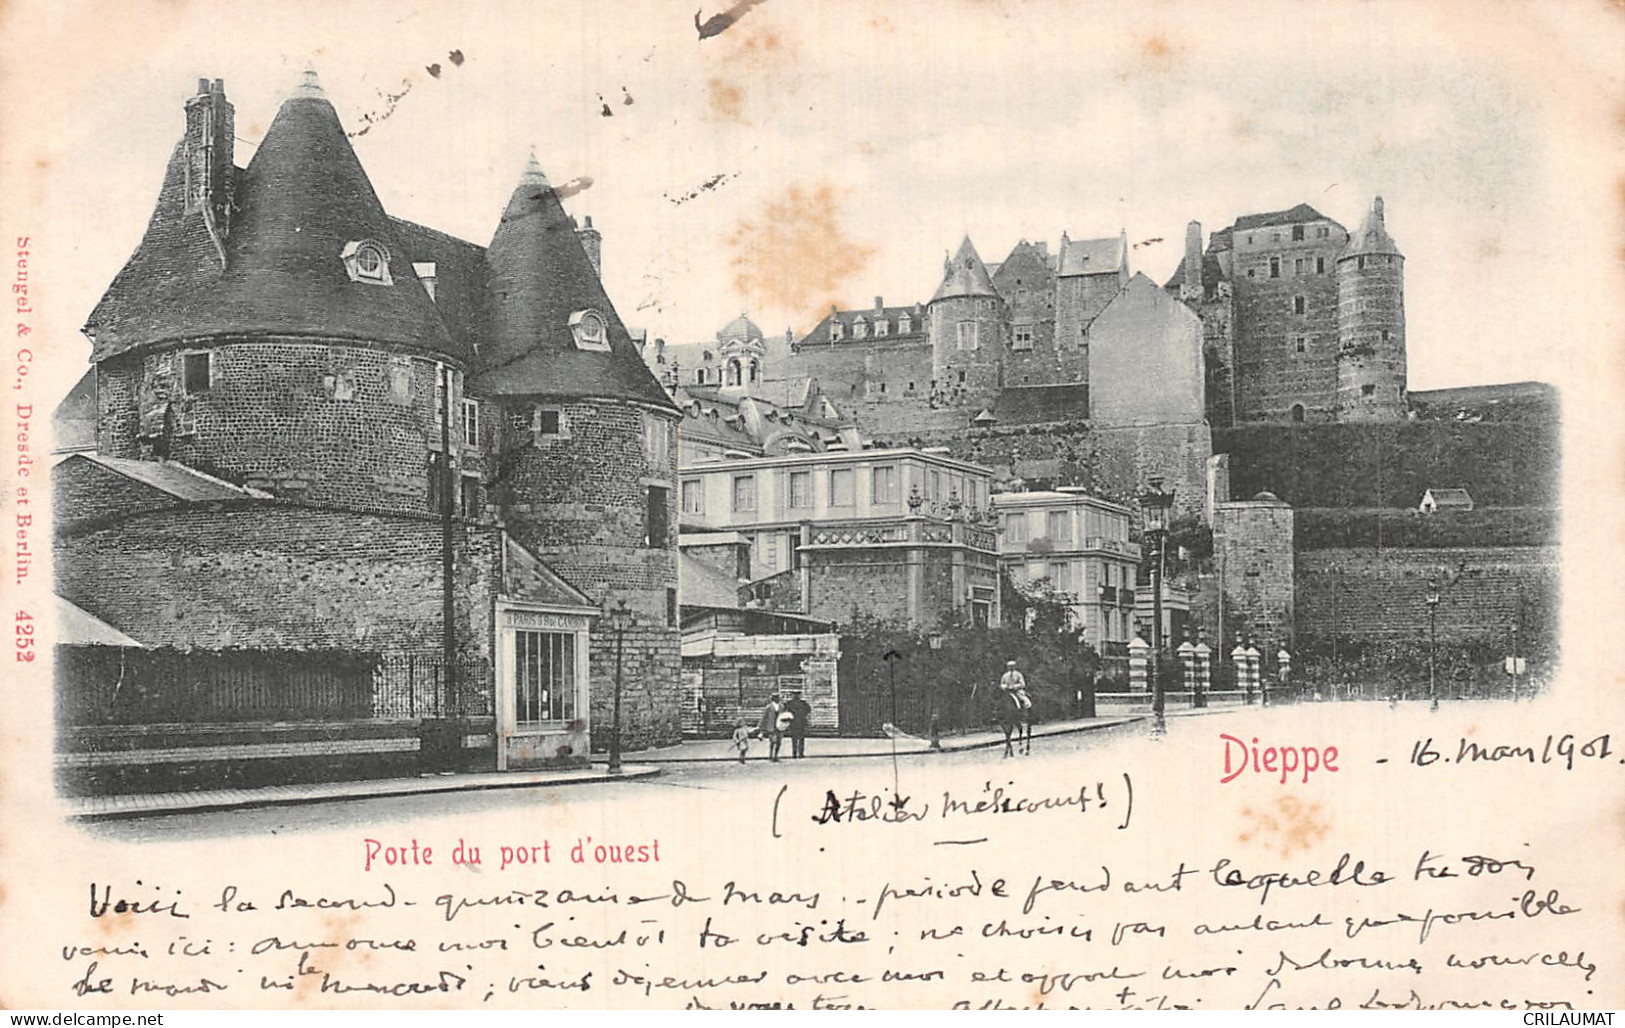 Stengel & Co., Dresde et Berlin. 4252
PARIS
Dieppe - 16. Mars 1901.
( Atelier Mélicourt! )
Porte du port d'ouest
Voici la seconde quinzaine de Mars .. période pendant laquelle tu dois
venir ici : annonce moi bientôt ta visite ; ne choisis pas autant que possible
le mardi ni le mercredi ; viens déjeuner avec moi et apporte moi de bonnes nouvelles
de vous tous
CRILAUMAT